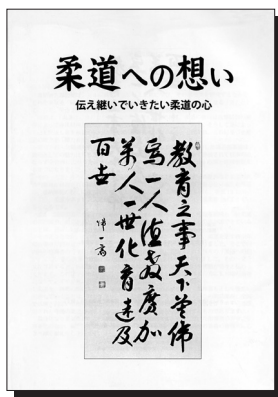 柔道への想い
伝え継いでいきたい柔道の心
教育之事天下莫偉
焉一人徳教廣加
萬人一世化育遠及
百世
帰一斎